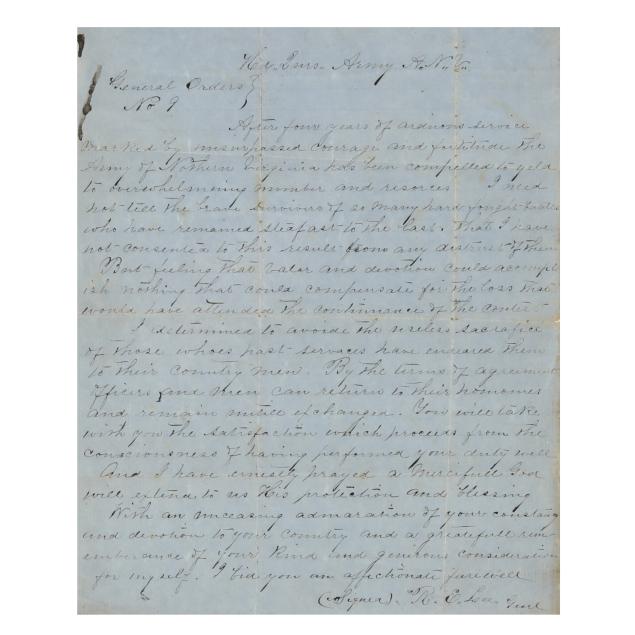 Hd Qurs. Army N. Va.
General Orders
No 9
After four years of arduous service
marked by unsurpassed courage and fortitude the
Army of Nothern Virginia has been compelled to yeld
to overwhelming number and resorces I need
not tell the brave survivers of so many hard fought
who have remaned steafast to the last. That I have
not consented to this result from any distrust of them
But feeling that valor and devotion could acompl
ish nothing that could compensate for the loss that
would have attended the continuance of the contest
I determined to avoide the useless sacrafice
of those whoes past services have endeared them
to their country men. By the terms of agreement
officers and men can return to their homes
and remain untill exchanged. You will take
with you the satisfaction which proceeds from the
consciousness of having performed your duty well
And I have ernestly prayed a Mercifull God
will extend to us His protection and blessing
With an unceasing admaration of your constancy
and devotion to your country and a greatefull rem
emberance of your kind and generous consideration
for myself. I bid you an affectionate farewell
(Signed). R. E. Lee Genl